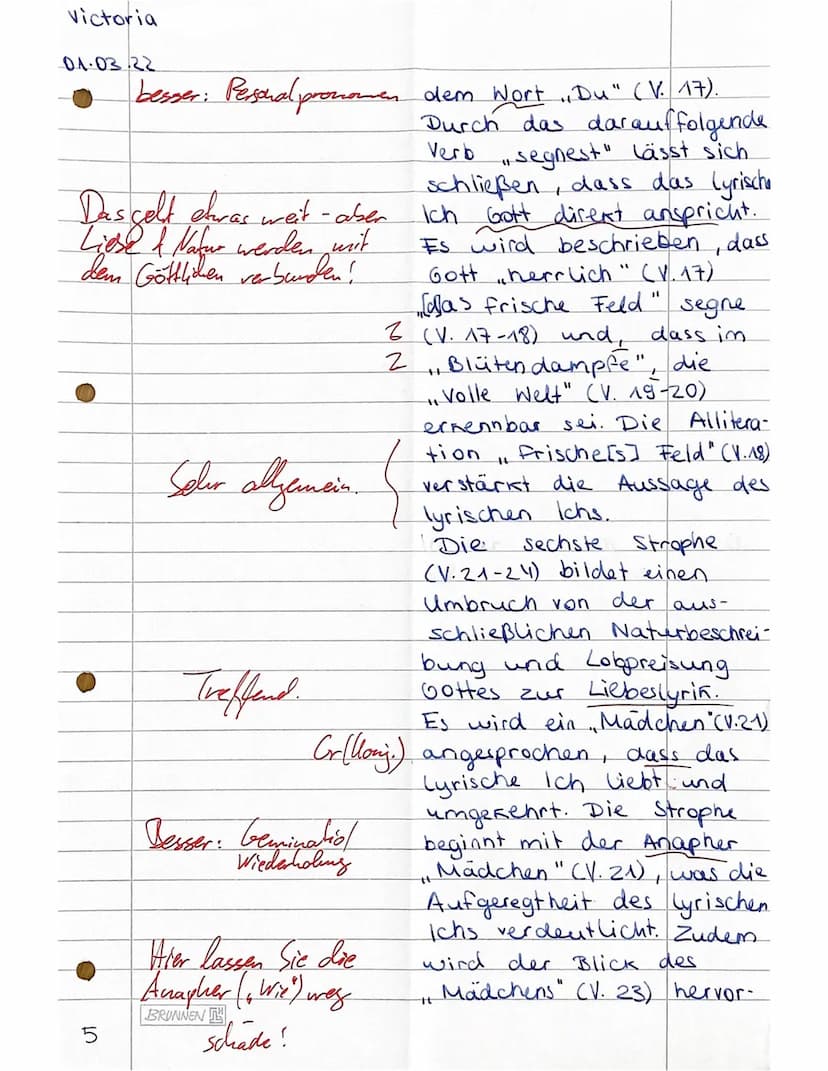 Victoria
01.03.22
besser: Personalpronomen
dem Wort „Du" (V. 17).
Durch das darauffolgende
Verb „segnest" lässt sich
schließen, dass das lyrische
Das geht etwas weit - aber
Ich Gott direkt anspricht.
Liebe & Natur werden mit
Es wird beschrieben, dass
dem Göttlichen verbunden!
Gott „herrlich" (V. 17)
„[d]as frische Feld" segne
Z (V. 17-18) und, dass im
Z „Blütendampfe", die
„volle Welt" (V. 19-20)
erkennbar sei. Die Allitera-
tion „frische[s] Feld" (V.18)
Sehr allgemein.
verstärkt die Aussage des
lyrischen Ichs.
Die sechste Strophe
(V. 21-24) bildet einen
Umbruch von der aus-
schließlichen Naturbeschrei-
bung und Lobpreisung
Treffend.
Gottes zur Liebeslyrik.
Es wird ein „Mädchen" (V.21)
Gr (Konj.)
angesprochen, dass das
lyrische Ich liebt und
umgekehrt. Die Strophe
Besser: Geminatio/
Wiederholung
beginnt mit der Anapher
„Mädchen" (V. 21), was die
Aufgeregtheit des lyrischen
Ichs verdeutlicht. Zudem
Hier lassen Sie die
wird der Blick des
Anapher („Wie") weg
„Mädchens" (V. 23) hervor-
BRUNNEN
schade!
5